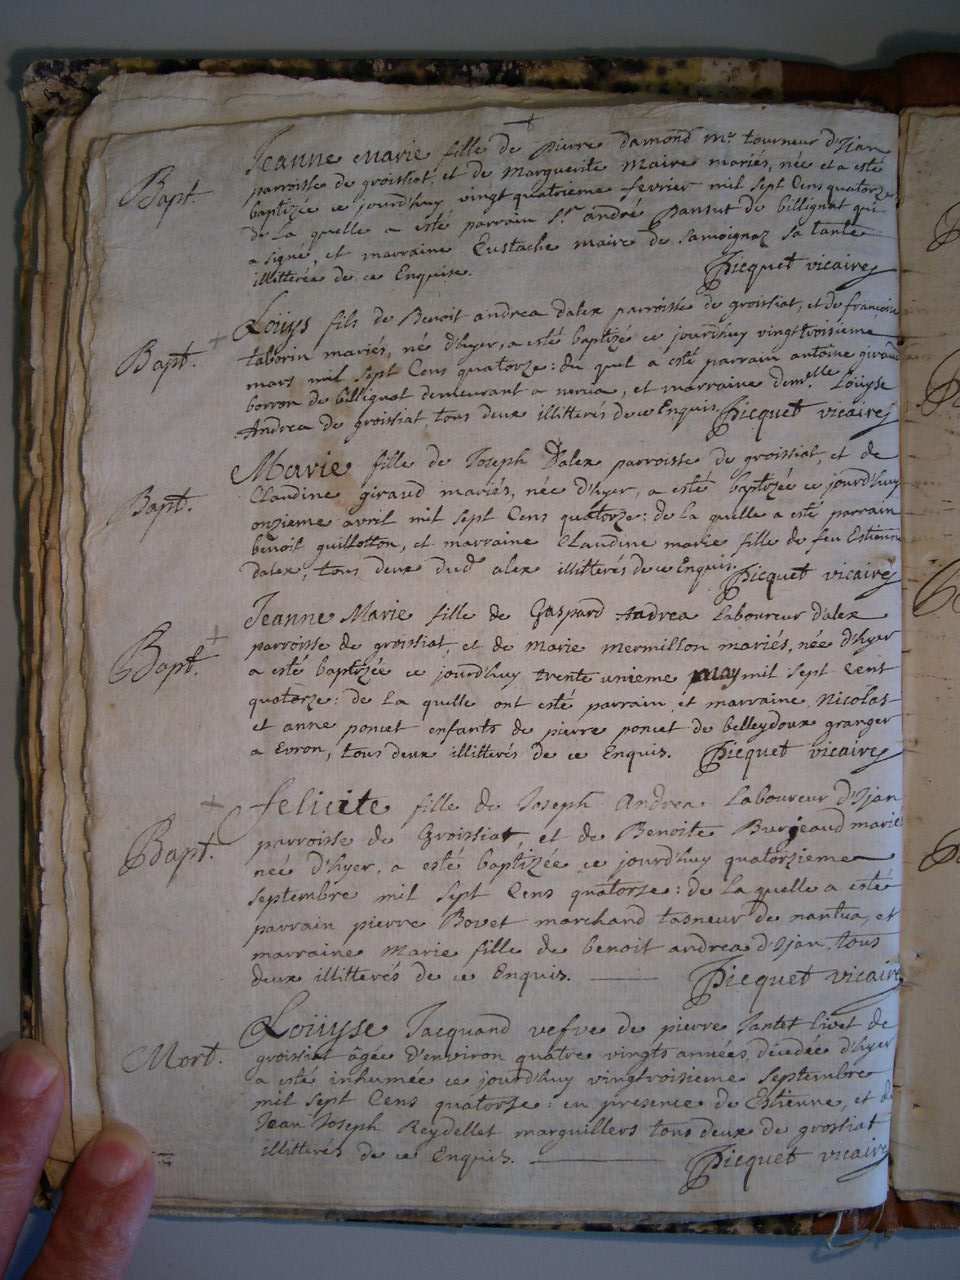 Bapt.
Jeanne Marie fille de Pierre damond mr. tourneur d'Ijan
parroisse de groissiat, et de Marguerite Maire mariés, née et a esté
baptizée ce jourd'huy vingt quatrieme fevrier mil sept Cens quatorze
de la quelle a esté parrain sr. andré Pansut de billignat qui
a signé, et marraine Eustache maire de samoignaz sa tante
illitterée de ce Enquise. Picquet vicaire
Bapt.
Loüys fils de Benoit andrea d'alex parroisse de groissiat, et de françoise
taborin mariés, né d'hyer, a esté baptizé ce jourd'huy vingt troisieme
mars mil sept Cens quatorze: du quel a esté parrain antoine giraud
borron de billignat demeurant a nercia, et marraine demlle. Loüyse
Andrea de groissiat tous deux illitterés de ce Enquis Picquet vicaire
Bapt.
Marie fille de Joseph Dalex parroisse de groissiat, et de
Claudine giraud mariés, née d'hyer, a esté baptizée ce jourd'huy
onzieme avril mil sept Cens quatorze: de la quelle a esté parrain
benoit guillotton, et marraine Claudine marie fille de feu Estienne
dalex, tous deux dud. alex illitterés de ce Enquis. Picquet vicaire
Bapt.
Jeanne Marie fille de Gaspard Andrea Laboureur d'alex
parroisse de groissiat, et de Marie Mermillon mariés, née d'hyer
a esté baptizée ce jourd'huy trente unieme may mil sept Cent
quatorze: de la quelle ont esté parrain et marraine Nicolas
et anne poncet enfants de pierre poncet de belleydoux granger
a Evron, tous deux illitterés de ce Enquis. Picquet vicaire
Bapt.
felicite fille de Joseph Andrea Laboureur d'Ijan
parroisse de Groissiat, et de Benoite Burjeaud mariés
née d'hyer, a esté baptizée ce jourd'huy quatorzieme
septembre mil sept Cens quatorze: de la quelle a esté
parrain pierre Bovet marchand tasneur de nantua, et
marraine Marie fille de benoit andrea d'Ijan, tous
deux illitterés de ce Enquis. Picquet vicaire
Mort.
Loüyse Jacquand vefve de pierre tantet livet de
groissiat âgée d'environ quatre vingts années, decedée d'hyer
a esté inhumée ce jourd'huy vingt troisieme septembre
mil sept Cens quatorze: en presence de Estienne, et de
Jean Joseph Reydellet marguillers tous deux de groissiat
illitterés de ce Enquis. Picquet vicaire